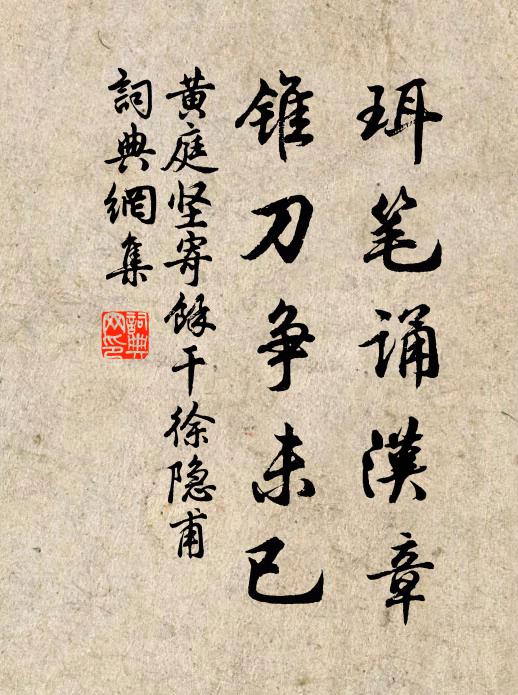 珥笔诵漢章
锥刀争未已
黄庭坚寄馀干徐隐甫
詞典網集
詞典
网印